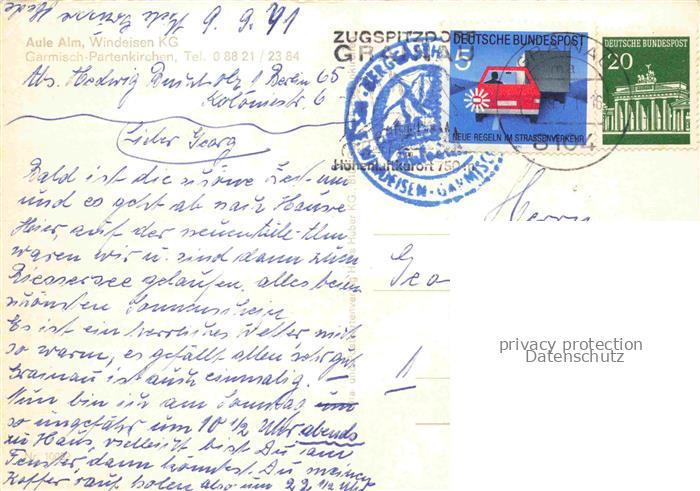 9. 9. 71
Aule Alm, Windeisen KG
Garmisch-Partenkirchen, Tel. 0 88 21 / 23 84
Abs. Hedwig 1 Berlin 65
Koloniestr. 6
Lieber Georg
Bald ist die schöne Zeit um
und es geht ab nach Hause
Hier, auf der Alm
waren wir u. sind dann zum
Riessersee gelaufen, alles beim
schönsten Sonnenschein
Es ist ein herrliches Wetter nicht
so warm, es gefällt allen sehr gut
Grainau ist auch einmalig. –
Nun bin ich am Sonntag um
so ungefähr um 10 ½ Uhr abends
zu Haus, vielleicht bist Du am
Fenster, dann könntest Du meinen
Koffer rauf holen also um 22 ½ Uhr
ZUGSPITZDO
GRAINAU
Höhenluftkurort 750 m
WINDEISEN - GARMISCH
DEUTSCHE BUNDESPOST
5
NEUE REGELN IM STRASSENVERKEHR
8104
DEUTSCHE BUNDESPOST
20
Herrn
Geo
privacy protection
Datenschutz